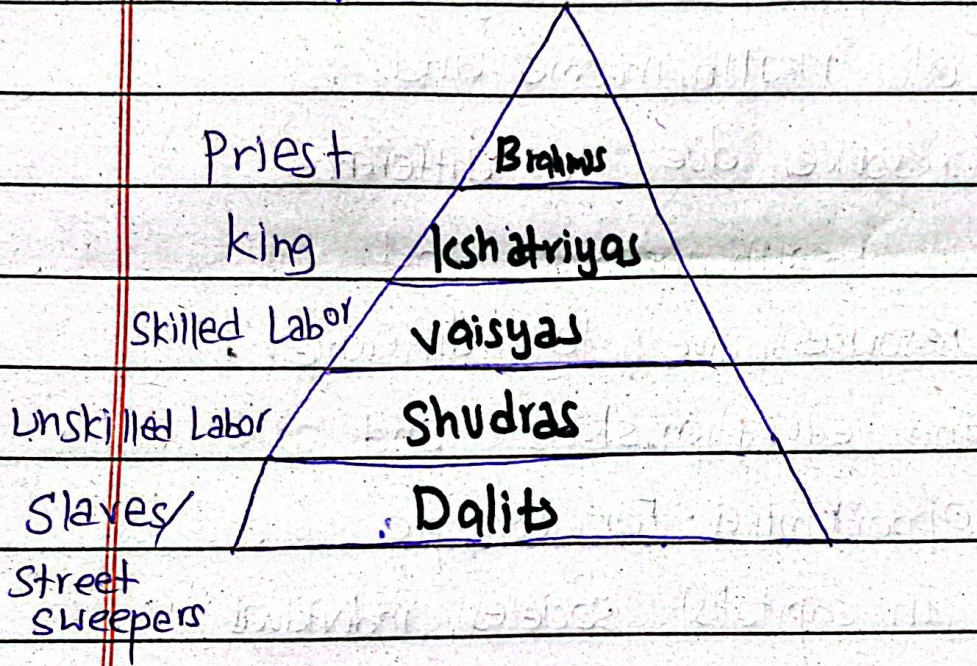 Priest Brahms
king kshatriyas
Skilled Labor vaisyas
Unskilled Labor Shudras
Slaves/ Dalits
Street
sweepers